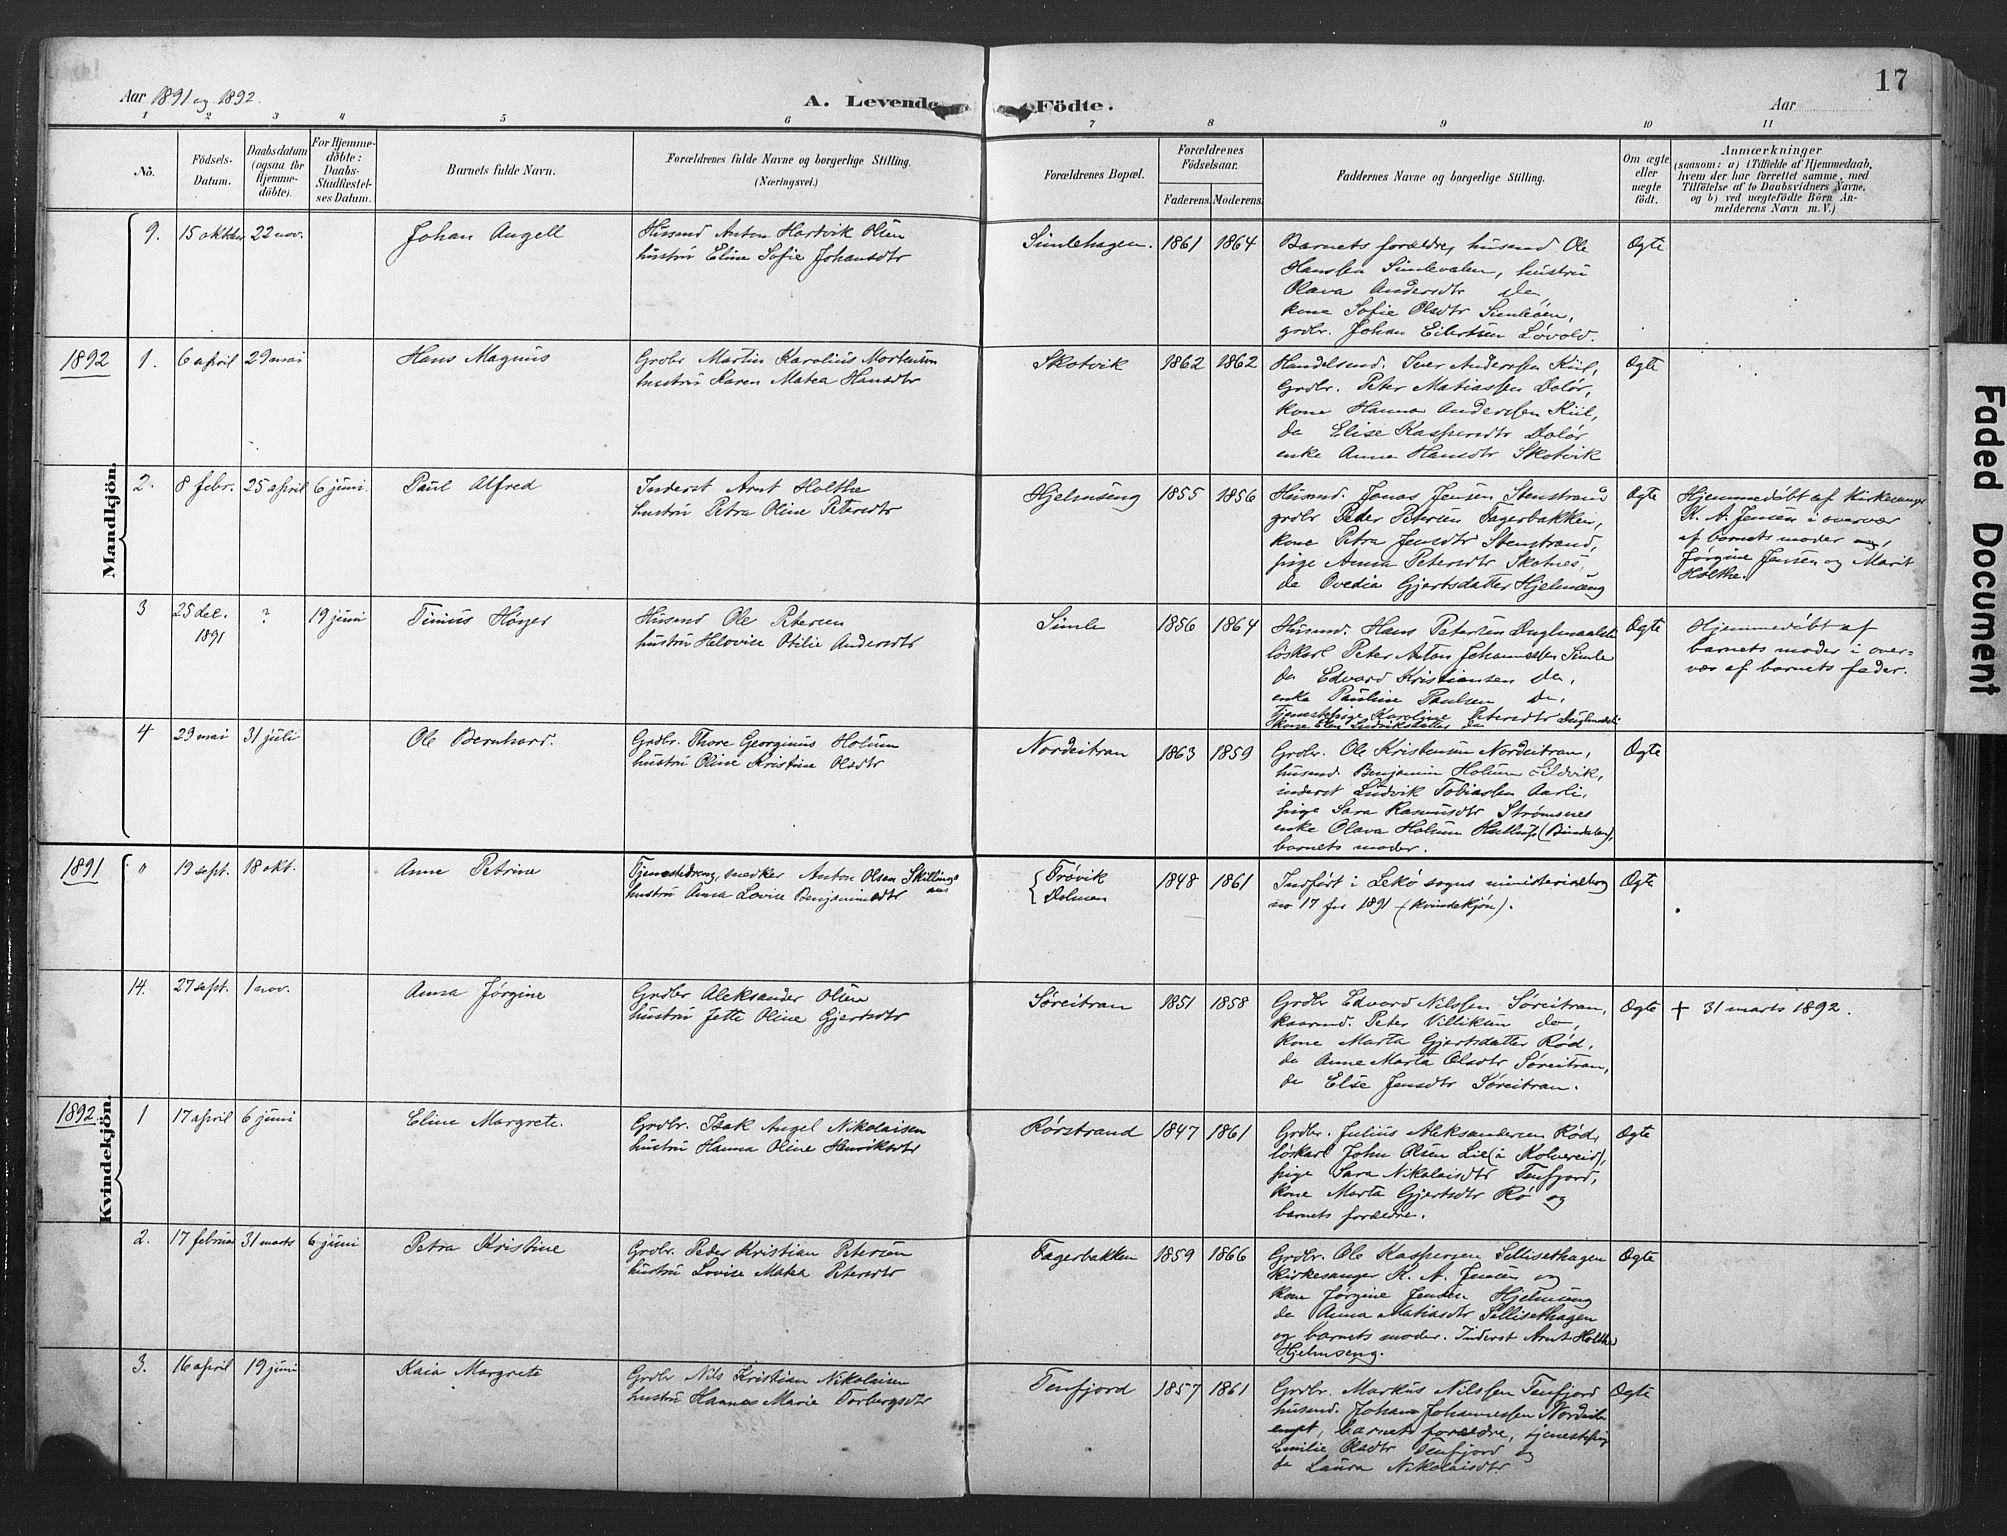 Aar 1891 og 1892.
A. Levende Födte.
Aar
17
1 2 3 4 5 6 7 8 9 10 11
No.
Födsels-
Datum.
Daabsdatum
(ogsaa for
Hjemme-
döbte).
For Hjemme-
döbte:
Daabs-
Stadfæstel-
ses Datum.
Barnets fulde Navn.
Forældrenes fulde Navne og borgerlige Stilling.
(Næringsvei.)
Forældrenes Bopæl.
Forældrenes
Födselsaar.
Faderens.
Moderens.
Faddernes Navne og borgerlige Stilling.
Om ægte
eller
uægte
födt.
Anmærkninger
(saasom: a) i Tilfælde af Hjemmedaab,
hvem der har forrettet samme, med
Tilföielse af to Daabsvidners Navne,
og b) ved uægtefödte Börn An-
melderens Navn m. V.)
Mandkjön.
9. 15 oktber 22 nov.
Johan Angell
Husmd Anton Hartvik Olsen
hustru Eline Sofie Johansdtr
Simlehagen. 1861 1864
Barnets forældre, husmd Ole
Hanssen Simlevalen, hustru
Olava Andersdtr do
kone Sofie Olsdtr Simleöen,
grdbr. Johan Eilertsen Løvold.
Ægte
1892 1. 6 april 29 mai
Hans Magnus
Grdbr Martin Karolius Mortensen
hustru Karen Matea Hansdtr
Skotvik 1862 1862
Handelsmd. Iver Anderssen Kiil,
Grdbr. Peter Matiassen Dolør,
kone Hanna Anderssen Kiil,
do Elise Kaspersdtr Dolør
enke Anna Hansdtr Skotvik
Ægte
2. 8 febr. 25 april 6 juni
Paul Alfred
Inderst Arnt Holthe
hustru Petra Oline Petersdtr
Hjelmseng 1855 1856
Husmd. Jonas Jensen Stenstrand
grdbr Peder Petersen Fagerbakken,
kone Petra Jensdtr Stenstrand,
pige Anna Petersdtr Skotnes,
do Ovedia Gjertsdatter Hjelmseng
Ægte
Hjemmedøbt af kirkesanger
K. A. Jensen i overvær
af barnets moder og,
Jørgine Jensen og Marit
Holthe.
3 25 dec. 1891 ? 19 juni
Timius Høyer
Husmd Ole Petersen
hustru Helovise Otilie Andersdtr
Simle 1856 1864
Husmd. Hans Petersen
løskarl Peter Anton Johannessen Simle
do Edvard Kristiansen do,
enke Pauline Paulsen do,
Tjenestepige Karoline Petersdtr
kone Elen Ludvikdatter do
Ægte
Hjemmedøbt af
barnets moder i over-
vær af barnets fader.
4 29 mai 31 juli
Ole Bernhard.
Grdbr. Thore Georginus Holum
hustru Oline Kristine Olsdtr
Nordeitran 1863 1859
Grdbr. Ole Kristensen Nordeitran,
husmd. Benjamin Holum Eidvik,
inderst Ludvik Tobiassen Aarli,
pige Sara Rasmusdtr Strømsnes
enke Olava Holum (Bindalen),
barnets moder.
Ægte
Kvindekjön.
1891 " 19 sept. 18 okt.
Anne Petrine
Tjenestedreng, snedker Anton Olsen Skillings-
aas
hustru Anna Lovise Benjaminsdtr
Trøvik
Dolmen
1848 1861
Indført i Lekø sogns ministerialbog
no 17 for 1891 (kvindekjøn).
Ægte
14. 27 sept. 1 nov.
Anna Jørgine
Grdbr Aleksander Olsen
hustru Jette Oline Gjertsdtr
Søreitran 1851 1858
Grdbr Edvard Nilssen Søreitran,
kaarmd. Peter Villiksen do,
kone Marta Gjertsdatter Rød,
do Anne Marta Olsdtr Søreitran,
do Else Jensdtr Søreitran.
Ægte
+ 31 marts 1892.
1892 1 17 april 6 juni
Eline Margrete.
Grdbr. Isak Angel Nikolaisen
hustru Hanna Oline Henriksdtr
Rørstrand 1847 1861
Grdbr. Julius Aleksandersen Rød,
løskarl John Olsen Lie (i Kolvereid),
pige Sara Nikolaisdtr Tenfjord,
kone Marta Gjertsdtr Rø og
barnets forældre.
Ægte
2. 17 februar 31 marts 6 juni
Petra Kristine
Grdbr. Peder Kristian Petersen
hustru Lovise Matea Petersdtr
Fagerbakken 1859 1866
Grdbr. Ole Kaspersen Sellisethagen
kirkesanger K. A. Jensen og
kone Jørgine Jensen Hjelmseng
do Anna Matiasdtr Sellisethagen
og barnets moder. Inderst Arnt Holthe
Hjelmseng.
Ægte
3. 16 april 19 juni
Kaia Margrete
Grdbr Nils Kristian Nikolaisen
hustru Hannes Marie Torbergsdtr
Tenfjord 1857 1861
Grdbr. Markus Nilssen Tenfjord
husmd. Johan Johannessen
barnets forældre, tjenestepig
Emilie Olsdtr Tenfjord og
do Laura Nikolaisdtr
Ægte
Faded Document